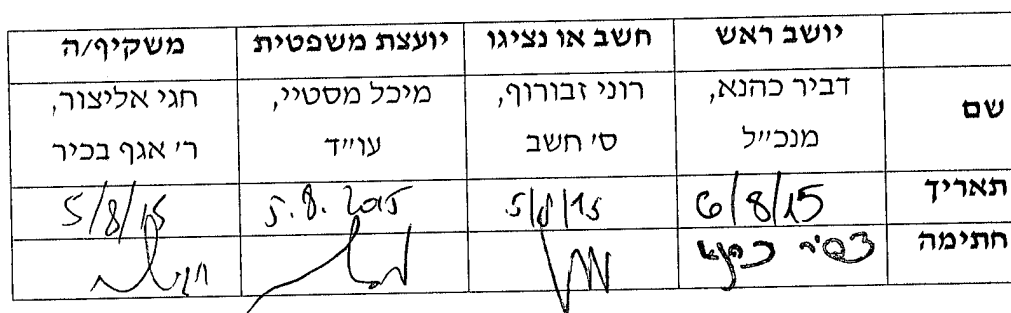 יושב ראש חשב או נציגו יועצת משפטית משקיף/ה
שם דביר כהנא, רוני זבורוף, מיכל מסטיי, חגי אליצור,
מנכ״ל ס׳ חשב עו״ד ר׳ אגף בכיר
תאריך 6/8/15 5/8/15 5.8.2015 5/8/15
חתימה דביר כהנא